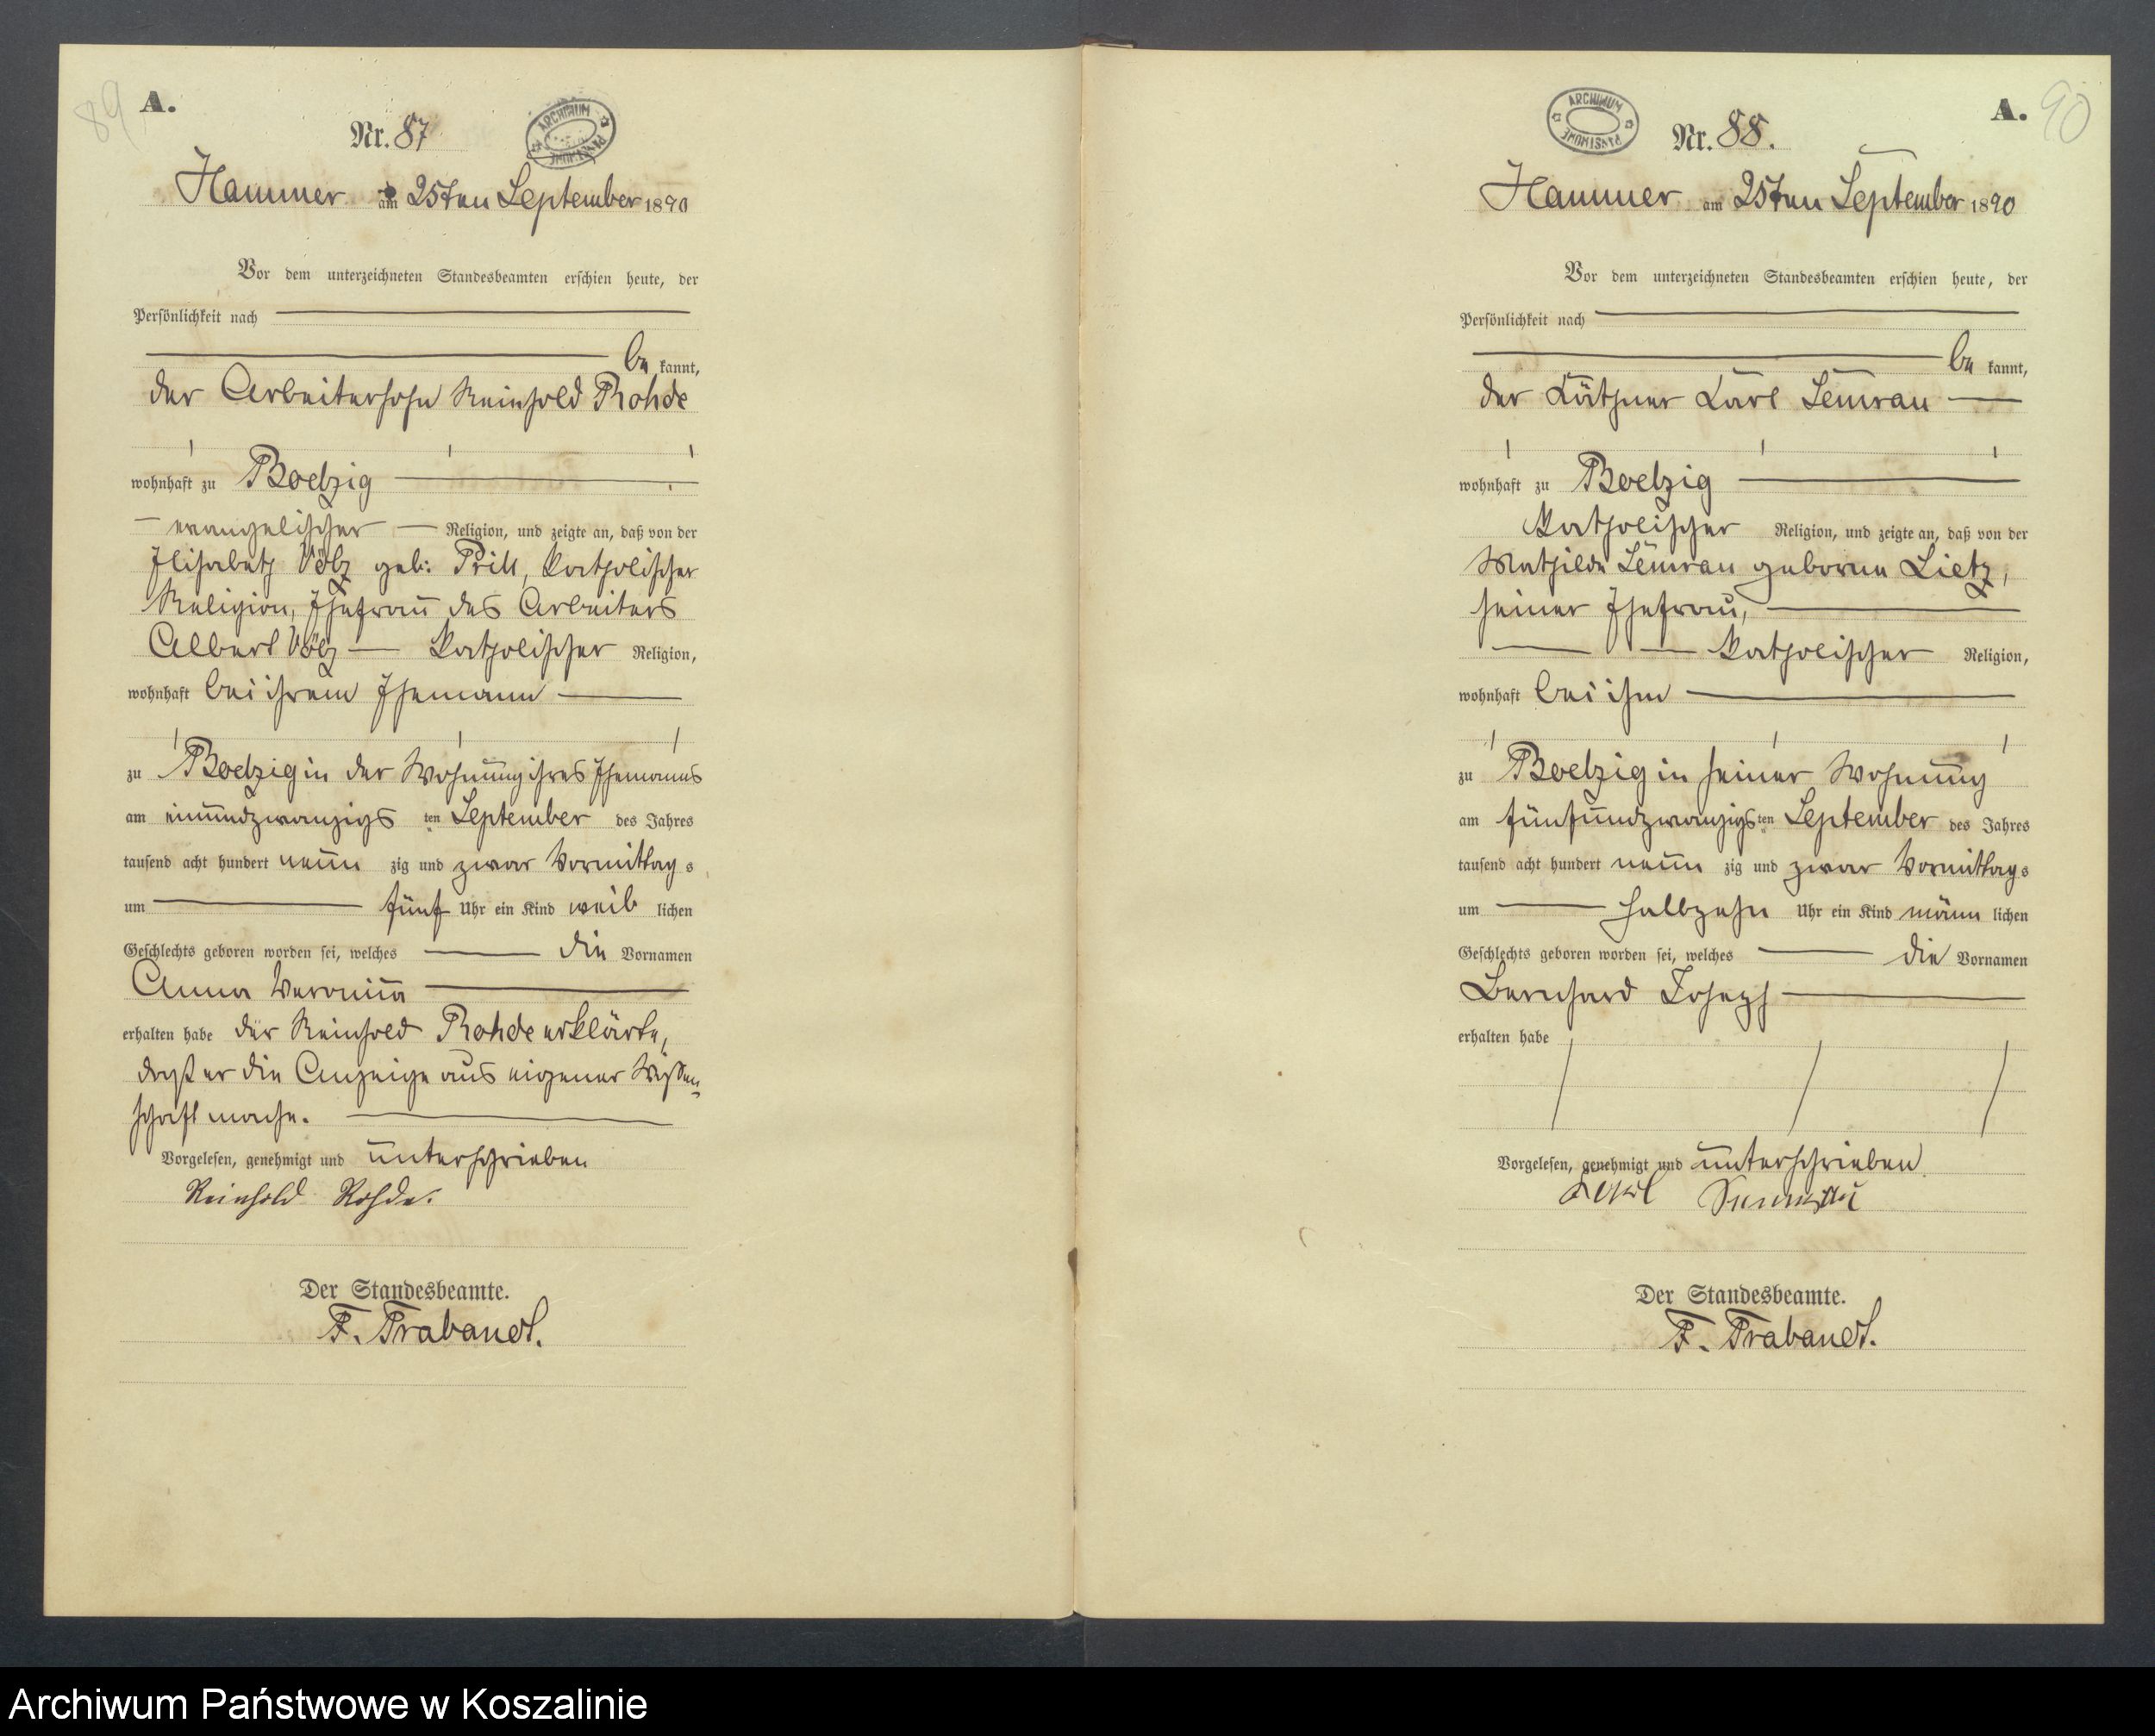 89
A.
Nr. 87
ARCHIWUM PAŃSTWOWE
Hammer am 25ten September 1890
Vor dem unterzeichneten Standesbeamten erschien heute, der
Persönlichkeit nach
be kannt,
der Arbeitersohn Reinhold Rohde
wohnhaft zu Boetzig
evangelischer Religion, und zeigte an, daß von der
Elisabeth Völz geb: Prill, katholischer
Religion, Ehefrau des Arbeiters
Albert Völz katholischer Religion,
wohnhaft bei ihrem Ehemann
zu Boetzig in der Wohnung ihres Ehemanns
am einundzwanzigs ten September des Jahres
tausend acht hundert neun zig und zwar Vormittag s
um fünf Uhr ein Kind weib lichen
Geschlechts geboren worden sei, welches die Vornamen
Anna Veronika
erhalten habe der Reinhold Rohde erklärte,
daß er die Anzeige aus eigener Wissen-
schaft mache.
Vorgelesen, genehmigt und unterschrieben
Reinhold Rohde.
Der Standesbeamte.
F. Trabandt.
90
A.
ARCHIWUM PAŃSTWOWE
Nr. 88.
Hammer am 25ten September 1890
Vor dem unterzeichneten Standesbeamten erschien heute, der
Persönlichkeit nach
be kannt,
der Käthner Karl Semrau
wohnhaft zu Boetzig
katholischer Religion, und zeigte an, daß von der
Mathilde Semrau geborne Lietz,
seiner Ehefrau,
katholischer Religion,
wohnhaft bei ihm
zu Boetzig in seiner Wohnung
am fünfundzwanzigs ten September des Jahres
tausend acht hundert neun zig und zwar Vormittag s
um halbzehn Uhr ein Kind männ lichen
Geschlechts geboren worden sei, welches die Vornamen
Bernhard Joseph
erhalten habe
Vorgelesen, genehmigt und unterschrieben
Karl Semrau
Der Standesbeamte.
F. Trabandt.
Archiwum Państwowe w Koszalinie